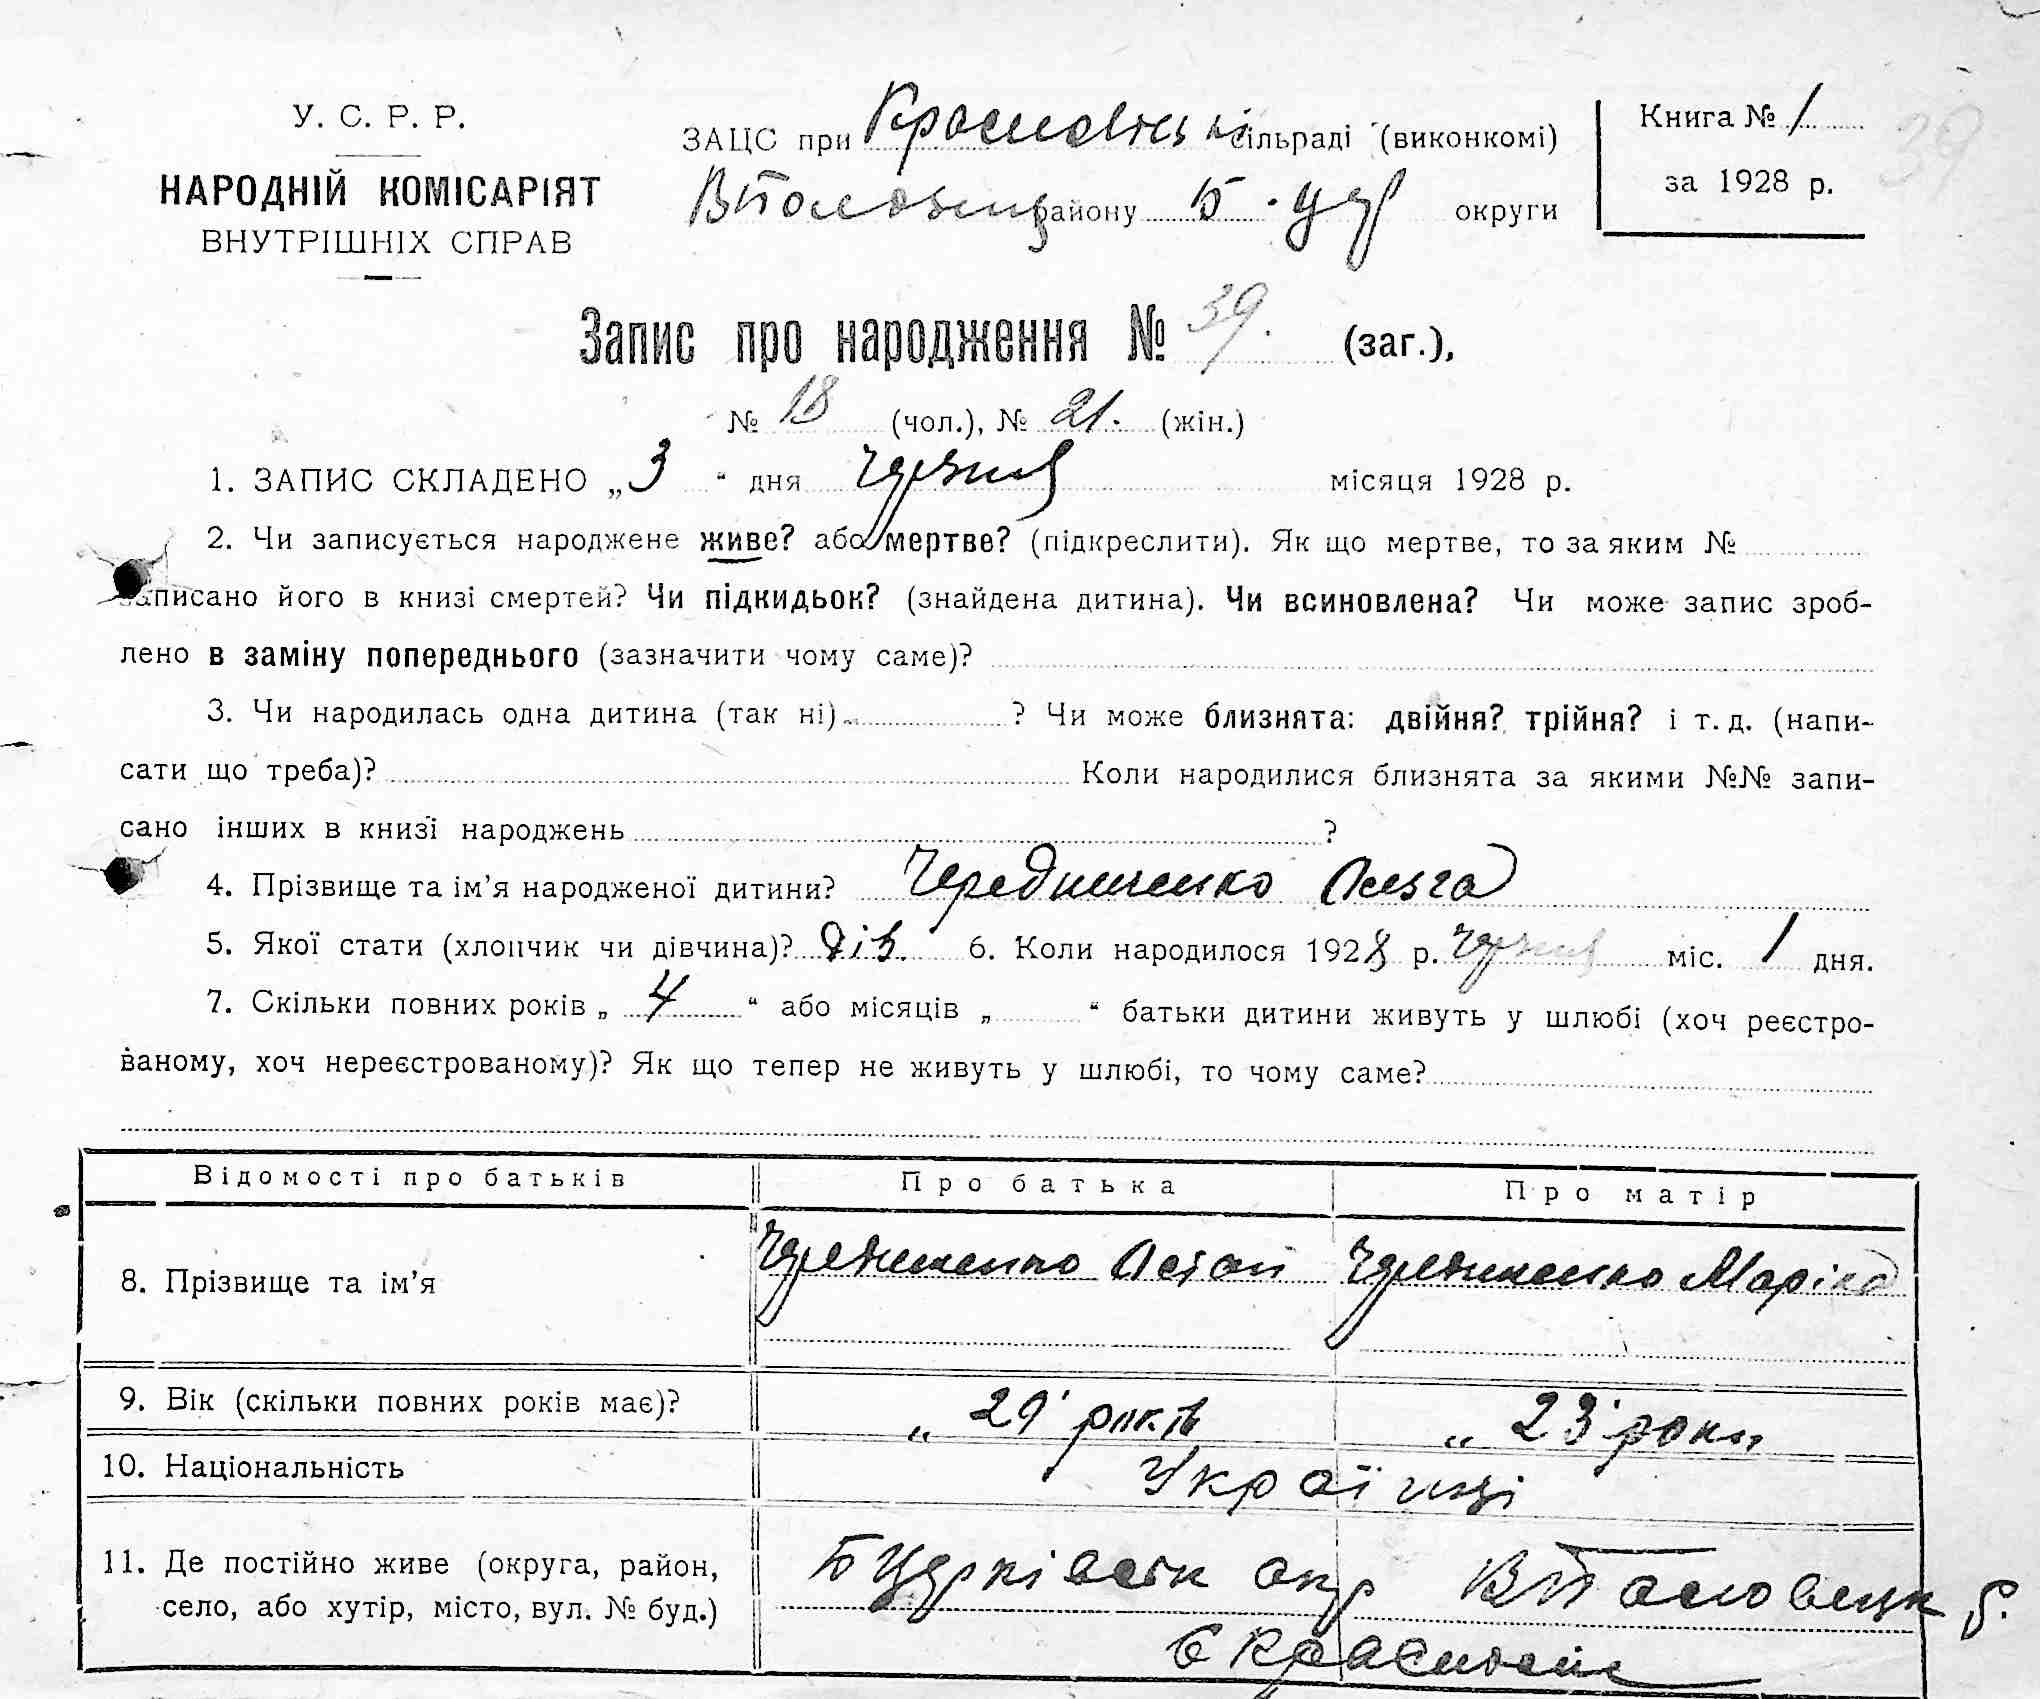 У. С. Р. Р.
НАРОДНІЙ КОМІСАРІЯТ
ВНУТРІШНІХ СПРАВ
ЗАЦС при сільраді (виконкомі)
району Б. Цер округи
Книга № 1
за 1928 р.
39
Запис про народження № 39. (заг.),
№ 18 (чол.), № 21. (жін.)
1. ЗАПИС СКЛАДЕНО „ 3 “ дня червня місяця 1928 р.
2. Чи записується народжене живе? або мертве? (підкреслити). Як що мертве, то за яким №
записано його в книзі смертей? Чи підкидьок? (знайдена дитина). Чи всиновлена? Чи може запис зроб-
лено в заміну попереднього (зазначити чому саме)?
3. Чи народилась одна дитина (так ні) ? Чи може близнята: двійня? трійня? і т. д. (напи-
сати що треба)? Коли народилися близнята за якими №№ запи-
сано інших в книзі народжень ?
4. Прізвище та ім’я народженої дитини? Чередниченко Ольга
5. Якої стати (хлопчик чи дівчина)? дів. 6. Коли народилося 1928 р. червня міс. 1 дня.
7. Скільки повних років „ 4 “ або місяців „ “ батьки дитини живуть у шлюбі (хоч реєстро-
ваному, хоч нереєстрованому)? Як що тепер не живуть у шлюбі, то чому саме?
Відомості про батьків Про батька Про матір
8. Прізвище та ім’я Чередниченко Остап Чередниченко Марія
9. Вік (скільки повних років має)? „ 29 років „ 23 роки
10. Національність Українці
11. Де постійно живе (округа, район,
село, або хутір, місто, вул. № буд.)
Б Церківськ окр р.
с